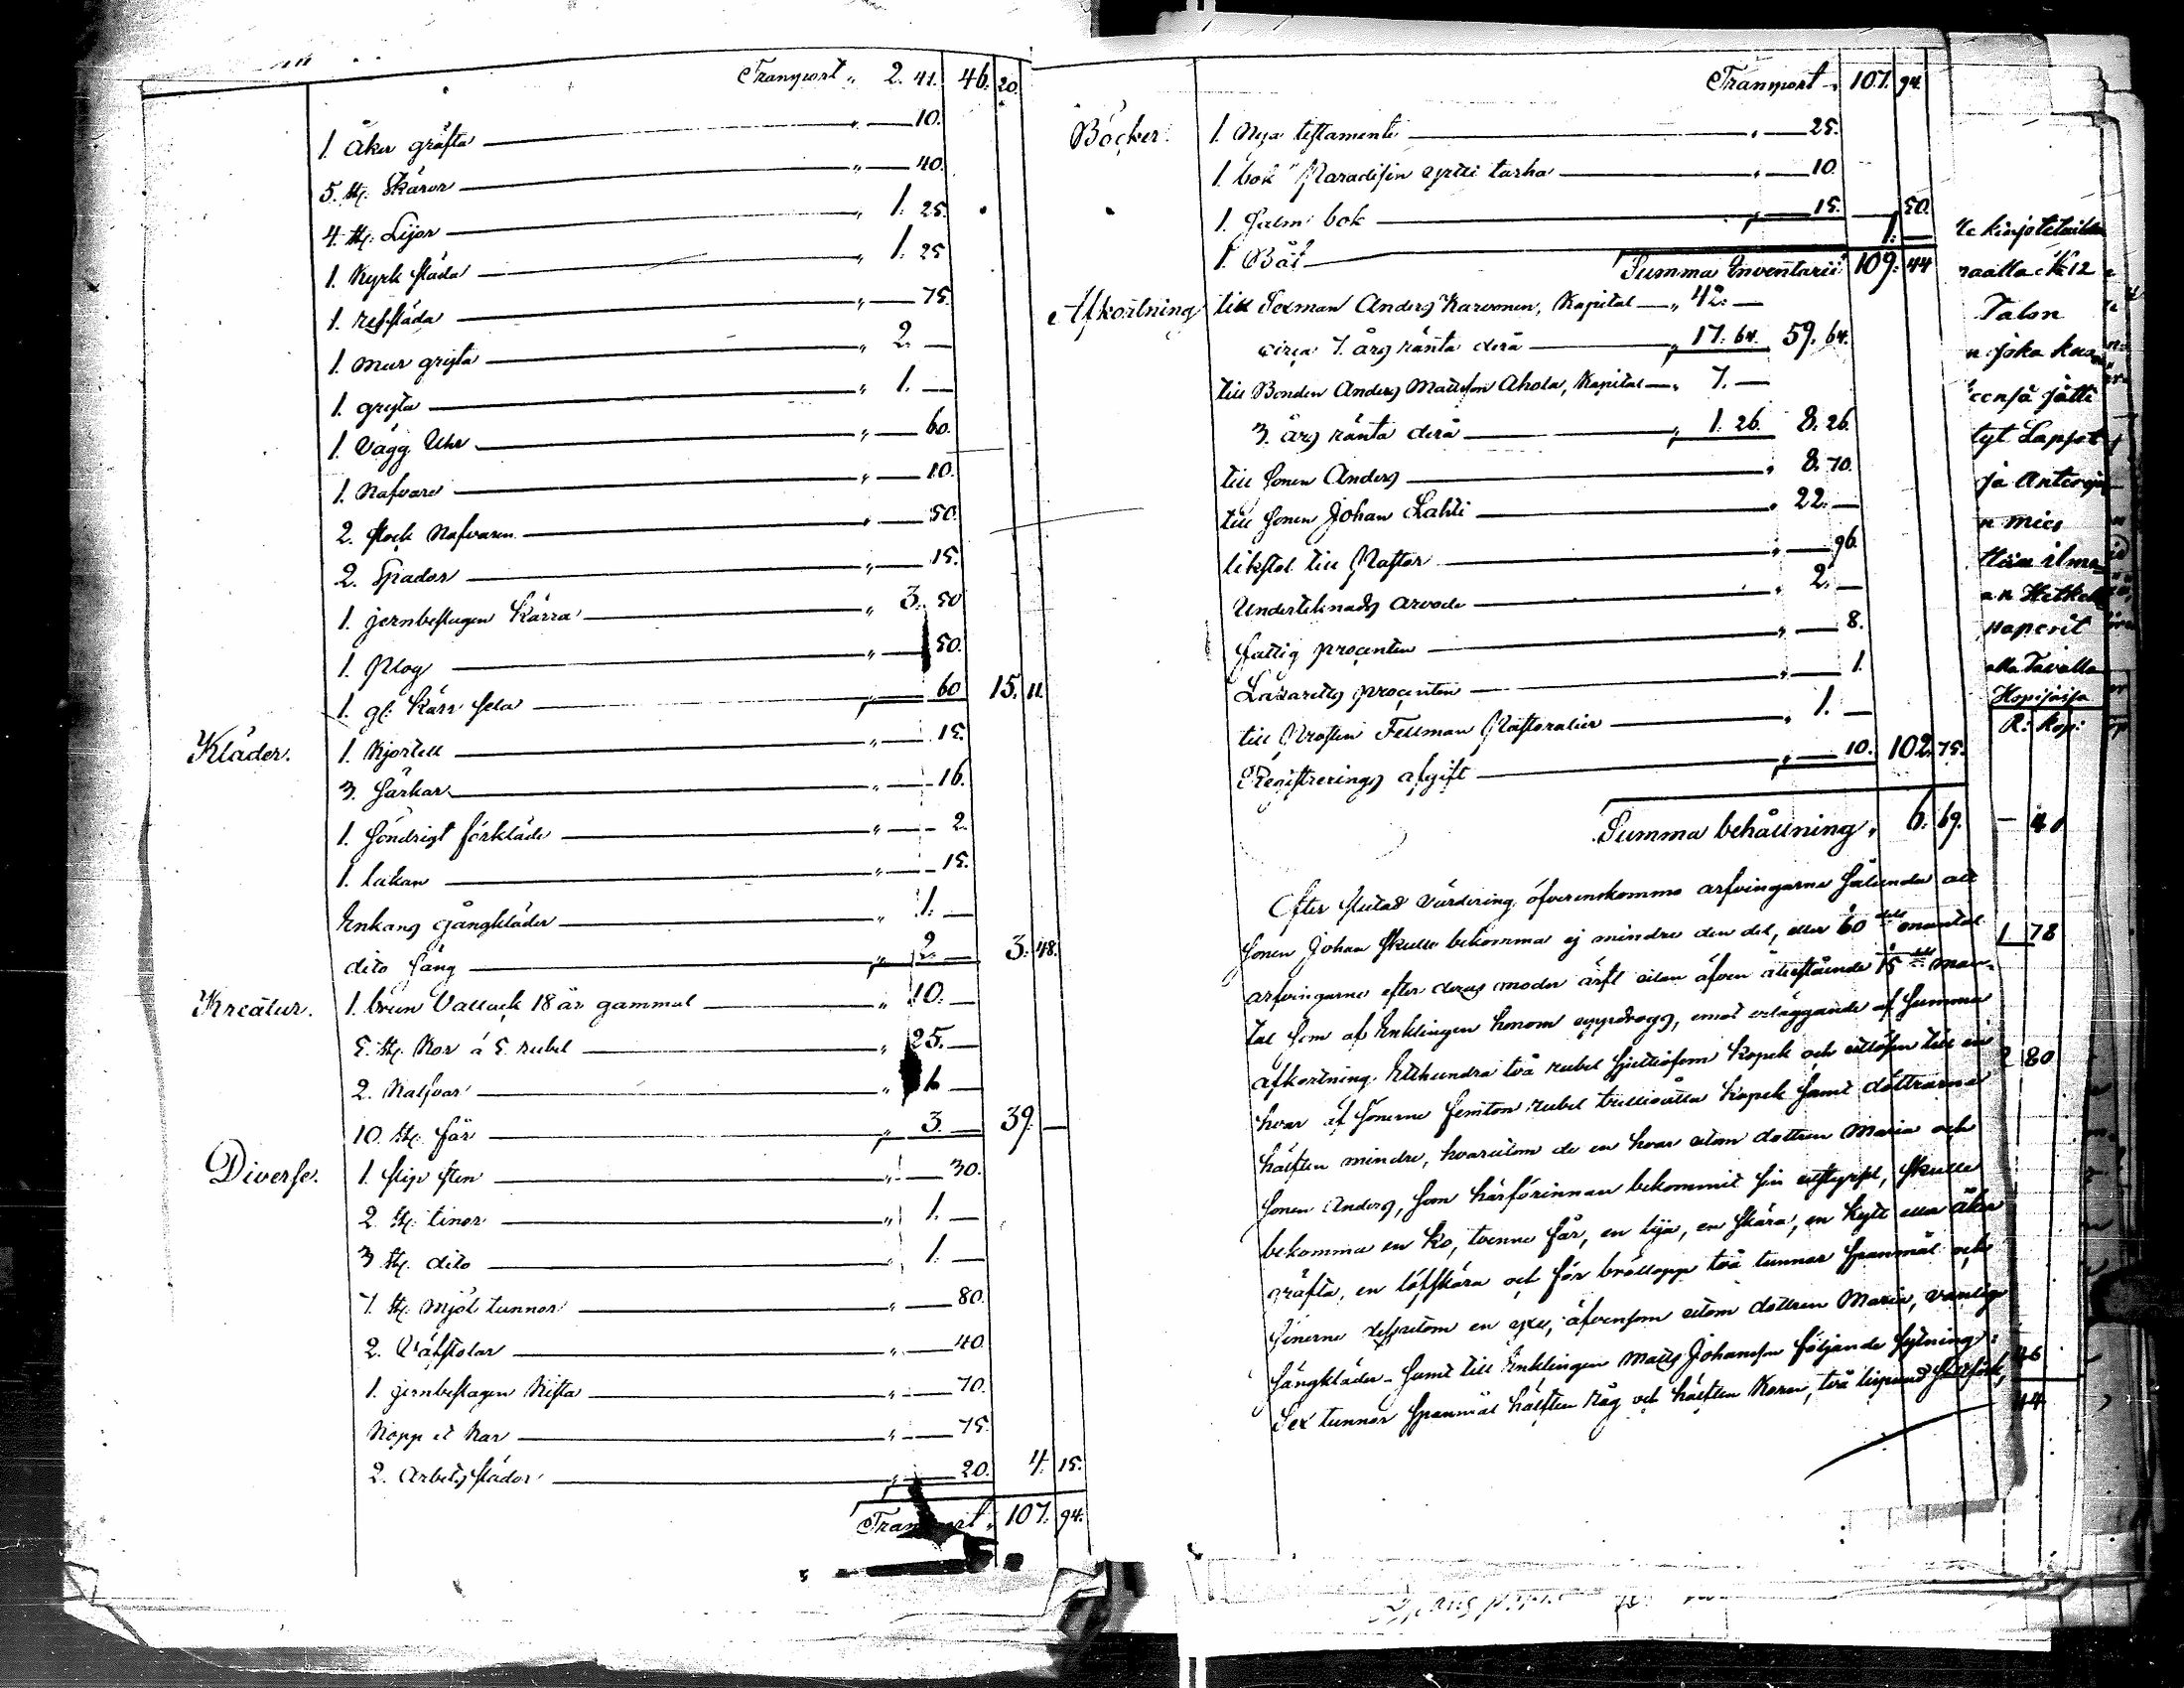 Transport „ 2. 41. 46. 20.
1. Åker gräfta „ — 10.
5. st. Skäror „ — 40.
4. st. Lijor „ 1. 25.
1. Kyrk släda „ 1. 25
1. ressläda „ — 75.
1. mur gryta „ 2. —
1. gryta „ 1. —
1. Vägg Uhr „ — 60.
1. Nafvare „ — 10.
2. stock Nafvaren „ — 50.
2. Spador „ — 15.
1. jernbeslagen Kärra „ 3. 50
1. Plog „ — 50.
1. gl: Kärr sela „ — 60 15. 11.
Kläder. 1. Kjortell „ — 15.
3. särkar „ — 16.
1. söndrigt förkläde „ — 2.
1. lakan „ — 15.
Enkans gångkläder „ 1. —
dito säng „ 2. — 3. 48.
Kreatur. 1. brun Vallack 18 år gammal „ 10. —
5. st. Kor á 5. rubel „ 25. —
2. Kalfvar „ 1. —
10. st. får „ 3. — 39. —
Diverse. 1. slip sten „ — 30.
2. st. tinor „ 1. —
3 st. dito „ 1. —
7. st. mjöl tunnor „ — 80.
2. Väfstolar „ — 40.
1. jernbeslagen Kista „ — 70.
Kopp et Kar „ — 75.
2. Arbets slädor „ — 20. 4. 15.
Transport „ 107. 94.
Transport „ 107. 94.
Böcker. 1. Nya testamente „ — 25.
1. bok "Paradisin yrtti tarha „ — 10.
1. salm bok „ — 15. — 50.
1. Båt 1. —
Summa Inventarii 109. 44
Afkortning till Sexman Anders Karvonen, Kapital — „ 42. —
circa 7. års ränta derå „ 17. 64. 59. 64.
till Bonden Anders Mattsson Ahola, Kapital — „ 7. —
3. års ränta derå „ 1. 26. 8. 26.
till sonen Anders „ 8. 70.
till sonen Johan Lahti „ 22. —
likstol till Pastor „ — 96.
Underteknads arvode „ 2. —
fattig procenten „ — 8.
Lazaretts procenten „ — 1.
till Prosten Fellman Pastoralier „ 1. —
Registrerings afgift „ — 10. 102. 75.
Summa behållning „ 6. 69.
Efter slutad värdering öfverenskommo arfvingarne sålunda att
sonen Johan skulle bekomma ej mindre den del, eller 60 dels mantal
arfvingarne efter deras moder ärft utan äfven återstående 15 dels man-
tal som af Enklingen honom uppdrogs, emot erläggande af summa
afkortning Etthundra två rubel sjuttiofem kopek och utlösen till en
hvar af sönerne femton rubel trettioåtta kopek samt döttrarne
hälften mindre, hvarutom de en hvar utom dottren Maria och
sonen Anders, som härförinnan bekommit sin utstyrsel, skulle
bekomma en ko, tvenne får, en lija, en skära, en Kytt eller åker
gräfta, en löfskära och för bröllopp två tunnor spanmål och
sönerne dessutom en yxe, äfvensom utom dottren Maria, vanlige
sängkläder — samt till Enklingen Matts Johansson följande sytning:
Sex tunnor spanmål hälften Råg och hälften Korn, två lispund
raatta № 12
Talon
tyt Lapset
n mies
paperit
R: Kop:
— 40
1 78
2 80
46
44